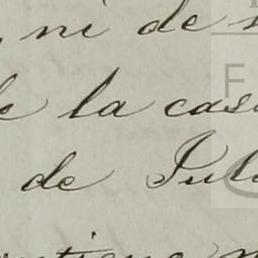 , ni de
de la cas
de Jul